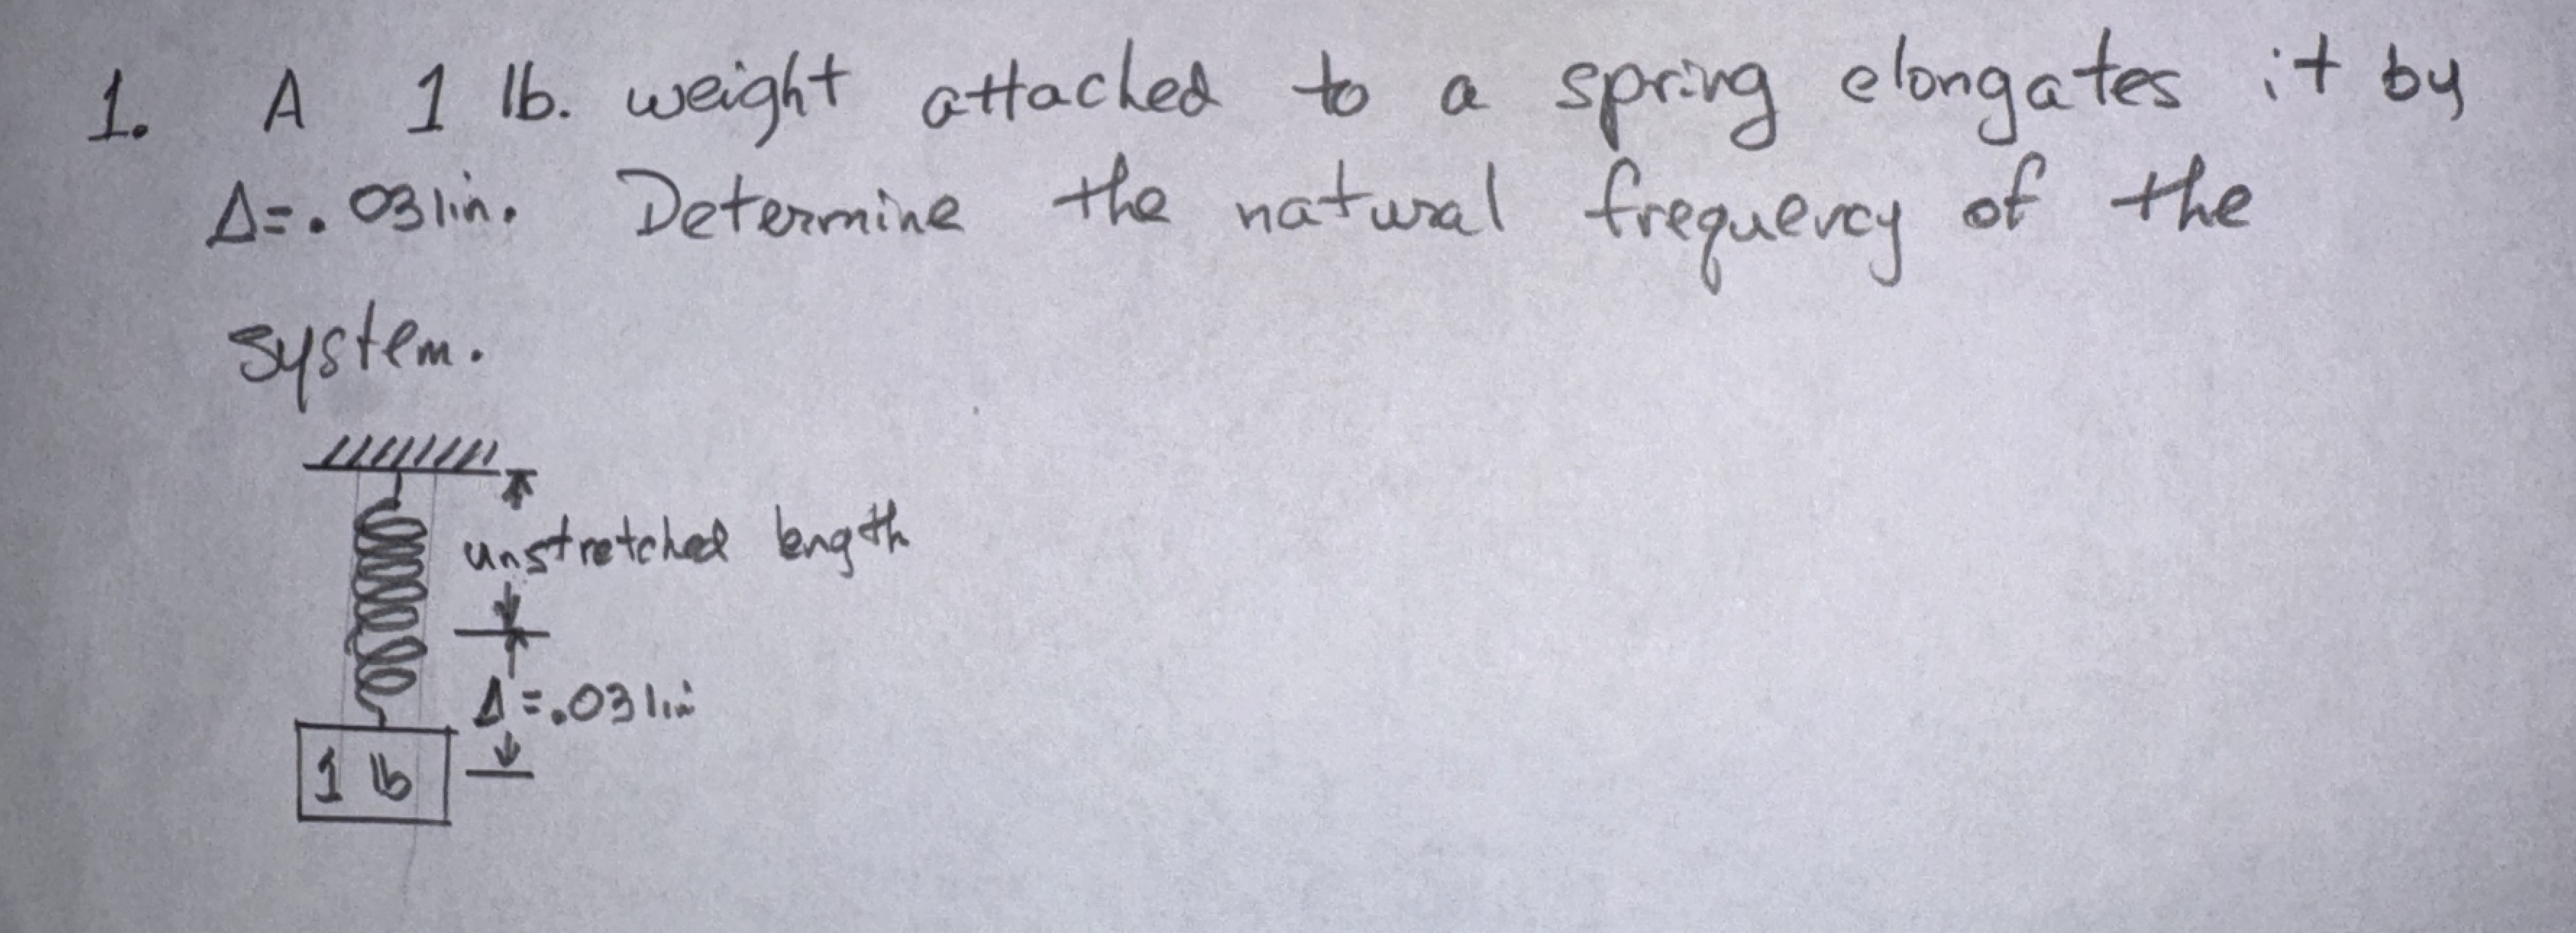 1. A 1 lb. weight attached to a spring elongates it by
Δ=.031in. Determine the natural frequency of the
system.
unstretched length
Δ=.031in
1 lb